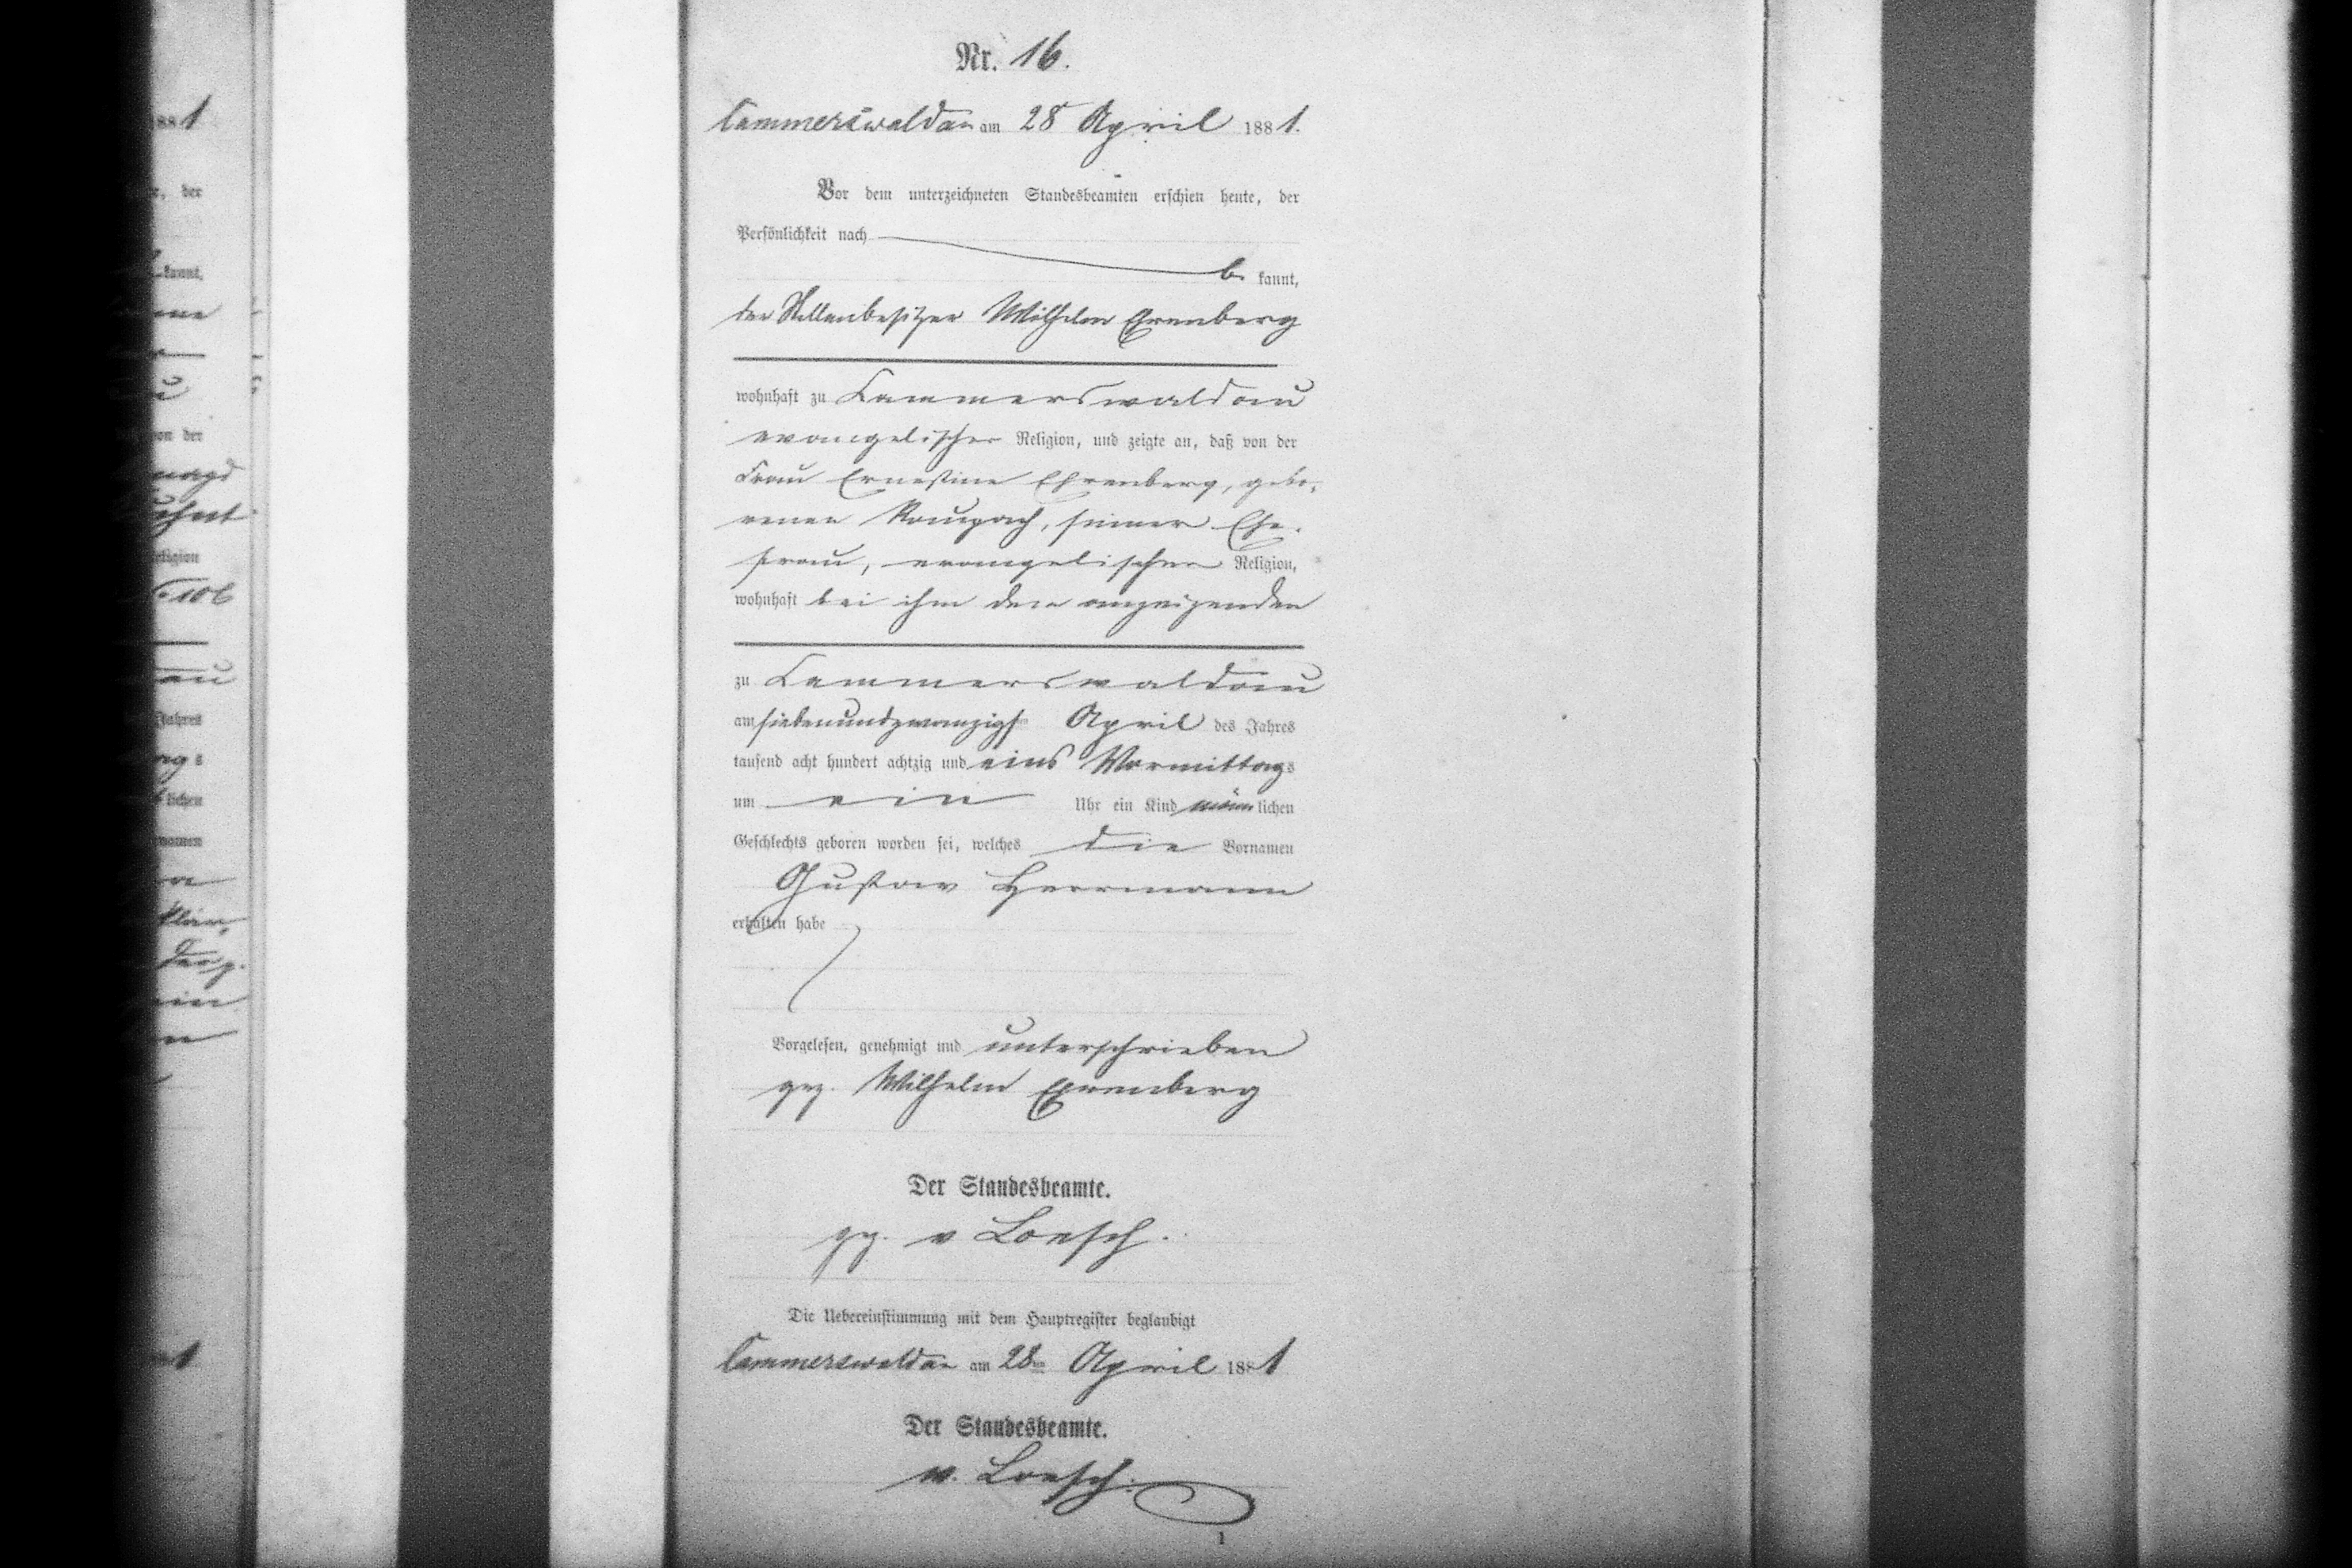 Nr. 16.
Cammerswaldau am 28 April 1881.
Vor dem unterzeichneten Standesbeamten erschien heute, der
Persönlichkeit nach
be kannt,
der Stellenbesitzer Wilhelm Erenberg
wohnhaft zu Cammerswaldau
evangelischer Religion, und zeigte an, daß von der
Frau Ernestine Ehrenberg, gebo-
renen Raupach, seiner Ehe-
frau, evangelischer Religion,
wohnhaft bei ihm dem anzeigenden
zu Cammerswaldau
am siebenundzwanzigsten April des Jahres
tausend acht hundert achtzig und eins Vormittags
um ein Uhr ein Kind männlichen
Geschlechts geboren worden sei, welches die Vornamen
Gustav Herrmann
erhalten habe
Vorgelesen, genehmigt und unterschrieben
gez. Wilhelm Erenberg
Der Standesbeamte.
gez. v Loesch.
Die Uebereinstimmung mit dem Hauptregister beglaubigt
Cammerswaldau am 28ten April 1881
Der Standesbeamte.
v. Loesch.
1